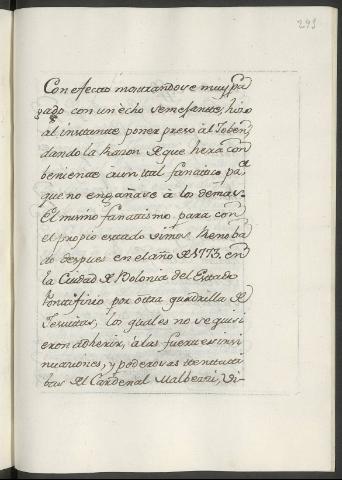 293
Con efecto mostrandose muy pa
gado con un echo semejante, hizo
al instante poner preso àl Joben,
dando la Razon de que hera con
beniente a un tal fanatico pa.ª
que no engañase à los demas.
El mismo fanatismo para con
el propio estado vimos Renoba
do despues en el año de 1773. en
la Ciudad de Bolonia del Estado
Pontificio por òtra quadrilla de
Jesuitas, los quales no se quisi
eron adherir, à las fuertes insi
nuaciones, y poderosas tentati
bas del Cardenal Malbezzi, Di-